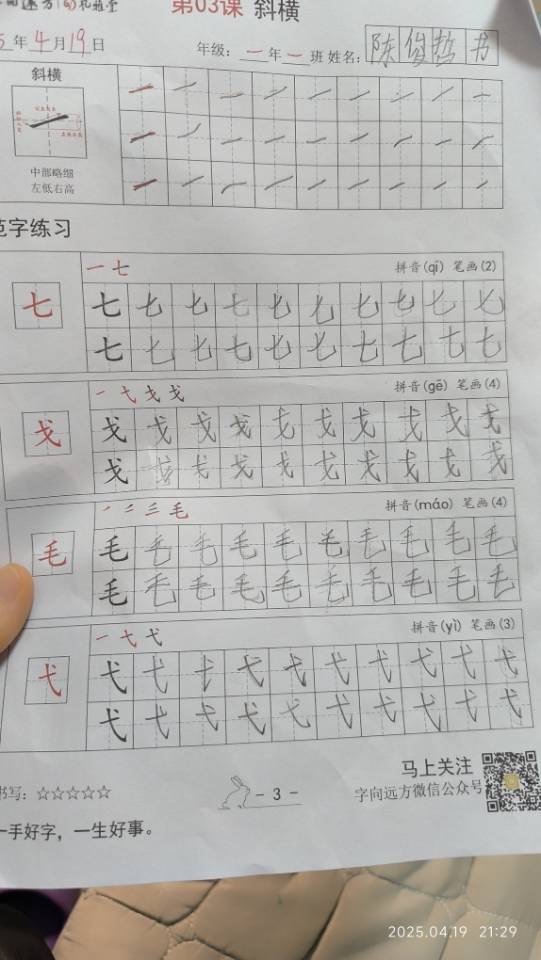 第03课 斜横
5年4月19日 年级：一年一班 姓名：陈俊哲书
斜横
中部略细
左低右高
范字练习
一 七 拼音(qī) 笔画(2)
七 七 七 七 七 七 七 七 七 七 七
七 七 七 七 七 七 七 七 七 七
一 弋 戈 戈 拼音(gē) 笔画(4)
戈 戈 戈 戈 戈 戈 戈 戈 戈 戈 戈
戈 戈 戈 戈 戈 戈 戈 戈 戈 戈
拼音(máo) 笔画(4)
二 三 毛
毛 毛 毛 毛 毛 毛 毛 毛 毛 毛 毛
毛 毛 毛 毛 毛 毛 毛 毛 毛 毛
一 弋 弋 拼音(yì) 笔画(3)
弋 弋 弋 弋 弋 弋 弋 弋 弋 弋 弋
弋 弋 弋 弋 弋 弋 弋 弋 弋 弋
书写：☆☆☆☆☆
- 3 -
马上关注
字向远方微信公众号
一手好字，一生好事。
2025.04.19 21:29